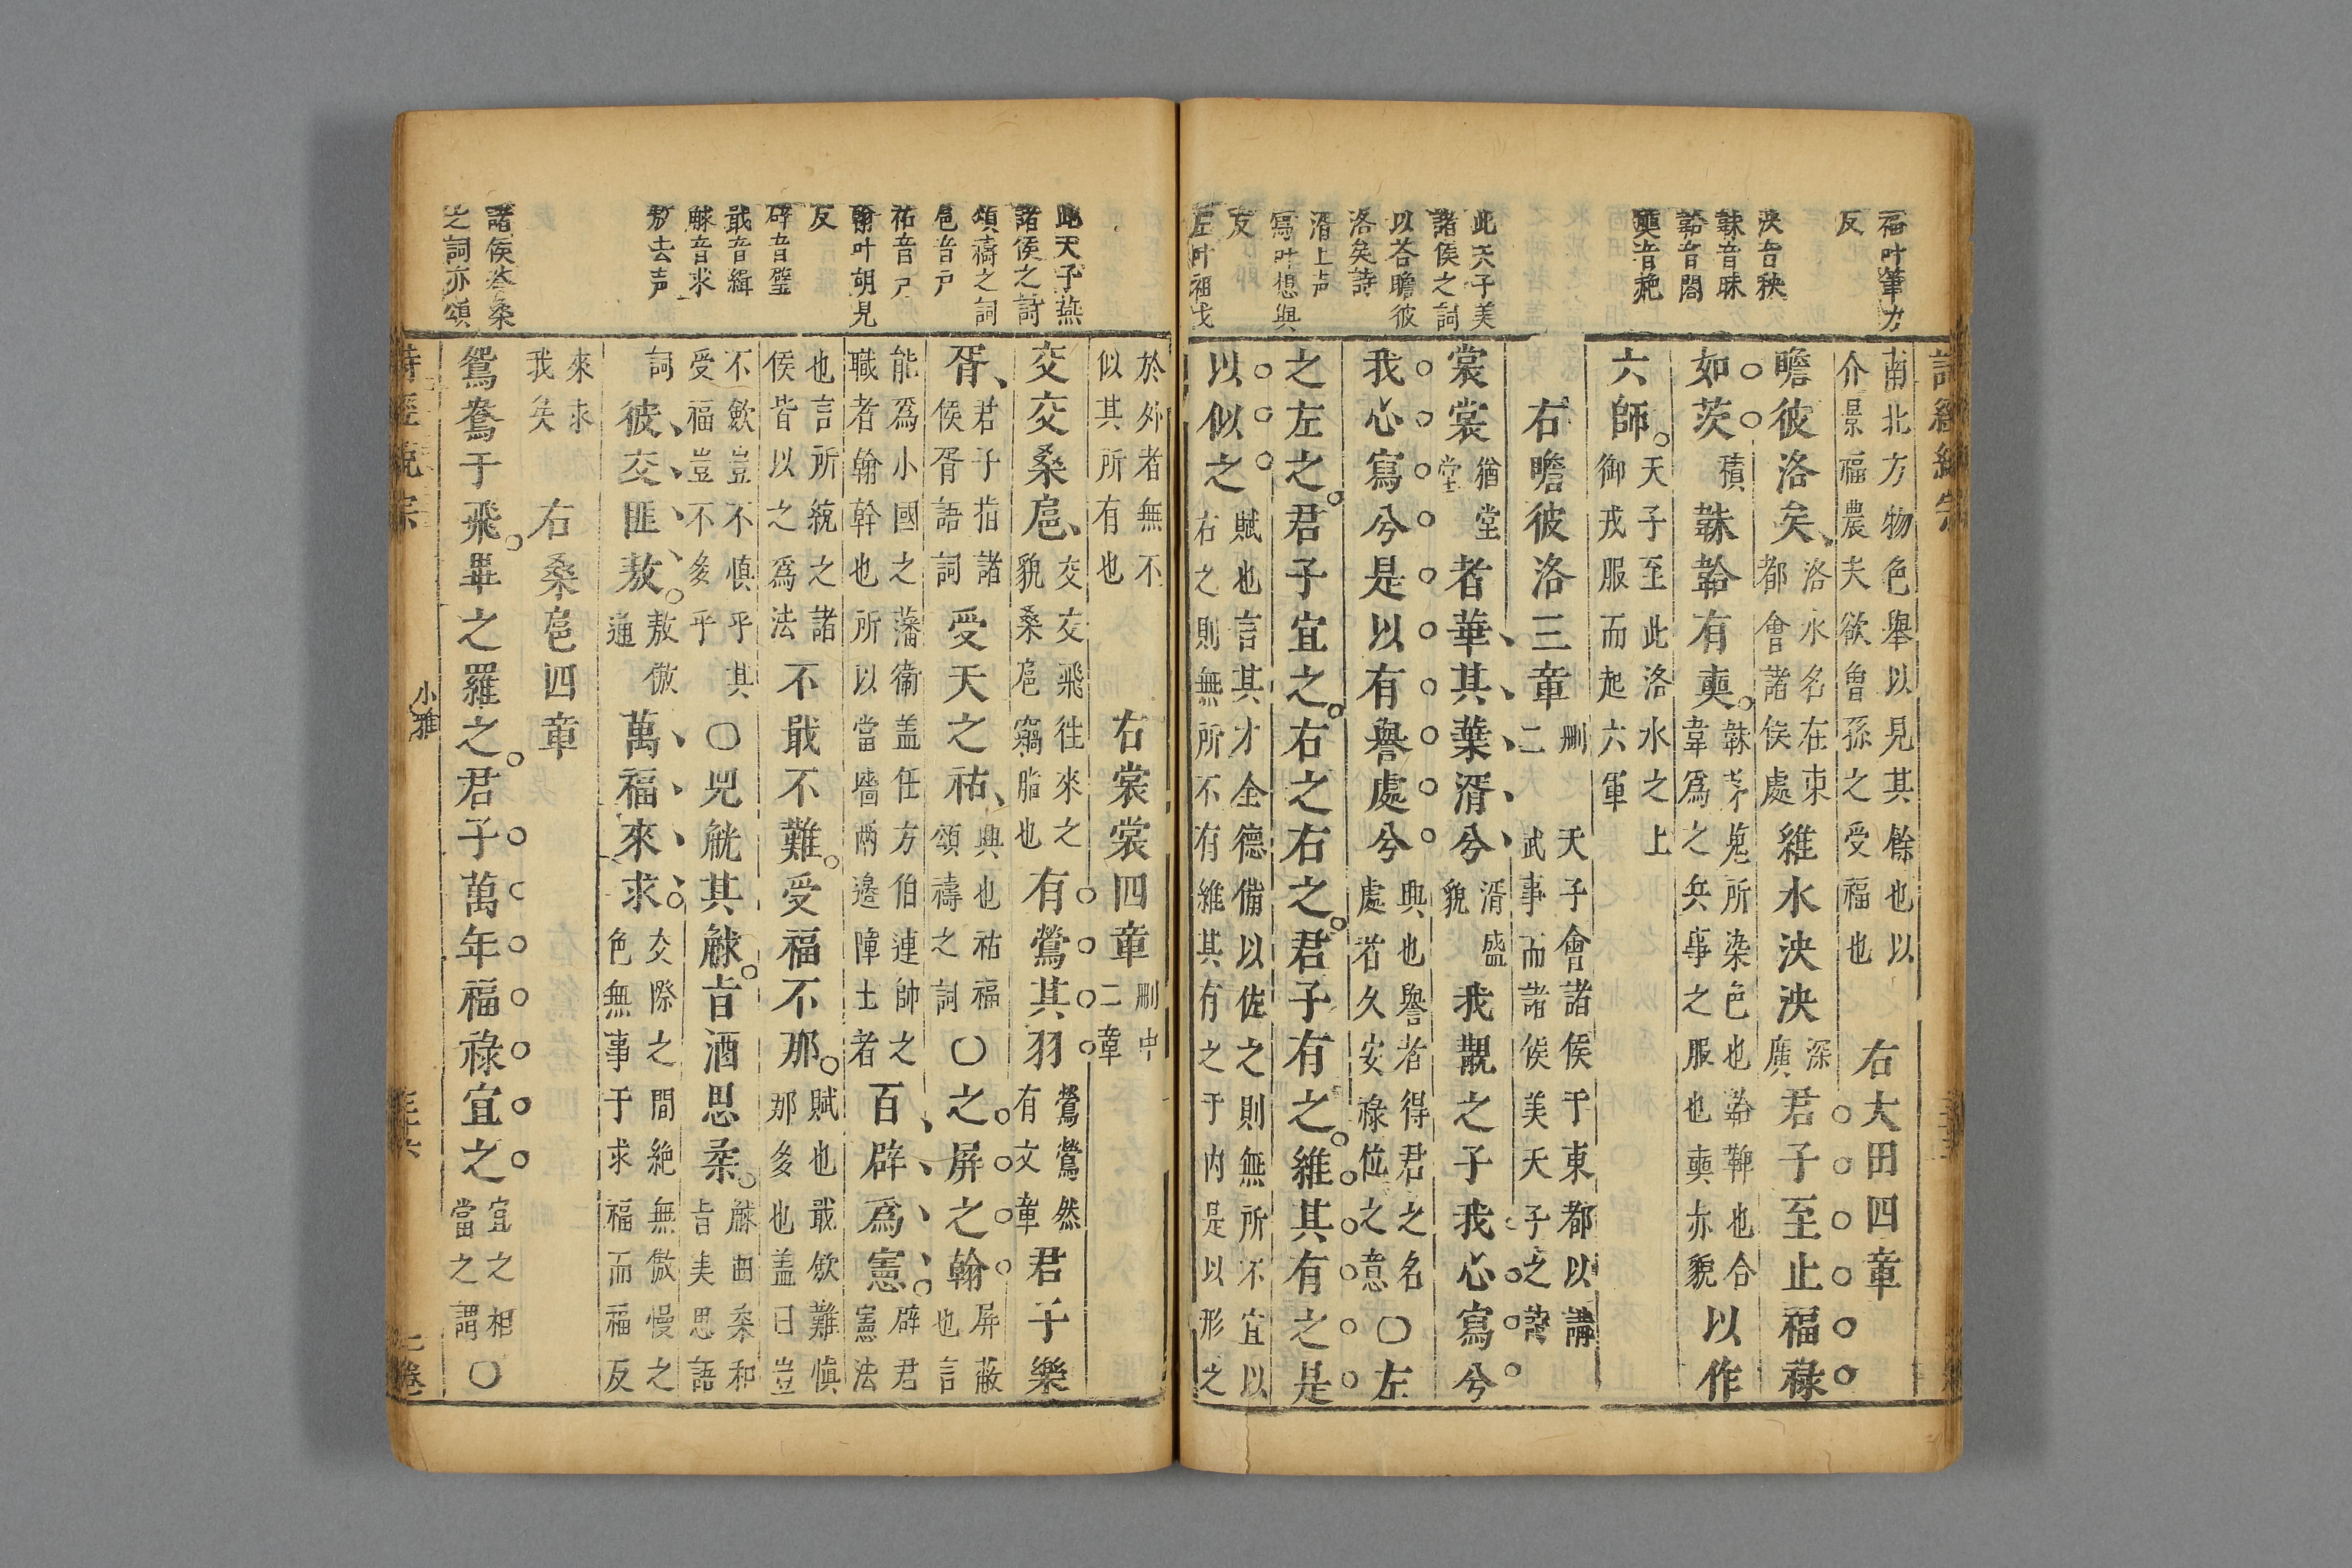 福叶筆力
反
泱音秧
韎音昧
韐音閤
奭音赩
此天子美
諸侯之詞
以荅瞻彼
洛矣詩
湑上声
寫叶想與
反
左叶祖戈
南北方物色舉以見其餘也以
介景福農夫欲曾孫之受福也
右大田四章
瞻彼洛矣
洛水名在東
都會諸侯處
維水泱泱
深
廣
君子至止福祿
如茨
積
韎韐有奭
韎茅蒐所染色也韐鞸也合
韋爲之兵事之服也奭赤貌
以作
六師
天子至此洛水之上
御戎服而起六軍
右瞻彼洛三章
刪
二
天子會諸侯于東都以講
武事而諸侯美天子之詩
裳裳
猶堂
堂
者華其葉湑兮
湑盛
貌
我覯之子我心寫兮
我心寫兮是以有譽處兮
興也譽若得君之名
處若久安祿位之意
〇左
之左之君子宜之右之右之君子有之維其有之是
以似之
賦也言其才全德備以佐之則無所不宜以
右之則無所不有維其有之于内是以形之
於外者無不
似其所有也
右裳裳四章
刪中
二章
此天子燕
諸侯之詩
頌禱之詞
扈音戶
祜音戶
翰叶胡見
反
辟音璧
戢音緝
觩音求
敖去声
諸侯荅桑
之詞亦頌
交交桑扈
交交飛往來之
貌桑扈竊脂也
有鶯其羽
鶯鶯然
有文章
君子樂
胥
君子指諸
侯胥語詞
受天之祜
興也祜福
頌禱之詞
〇之屏之翰
屏蔽
也言
能爲小國之藩衛盖任方伯連帥之
職者翰幹也所以當墻兩邊障土者
百辟爲憲
辟君
憲法
也言所統之諸
侯皆以之爲法
不戢不難受福不那
賦也戢斂難慎
那多也盖曰豈
不斂豈不慎乎其
受福豈不多乎
〇兕觥其觩旨酒思柔
觩曲柔和
旨美思語
詞
彼交匪敖
敖傲
通
萬福來求
交際之間絶無傲慢之
色無事于求福而福反
來求
我矣
右桑扈四章
鴛鴦于飛畢之羅之君子萬年福祿宜之
宜之相
當之謂
〇
小雅